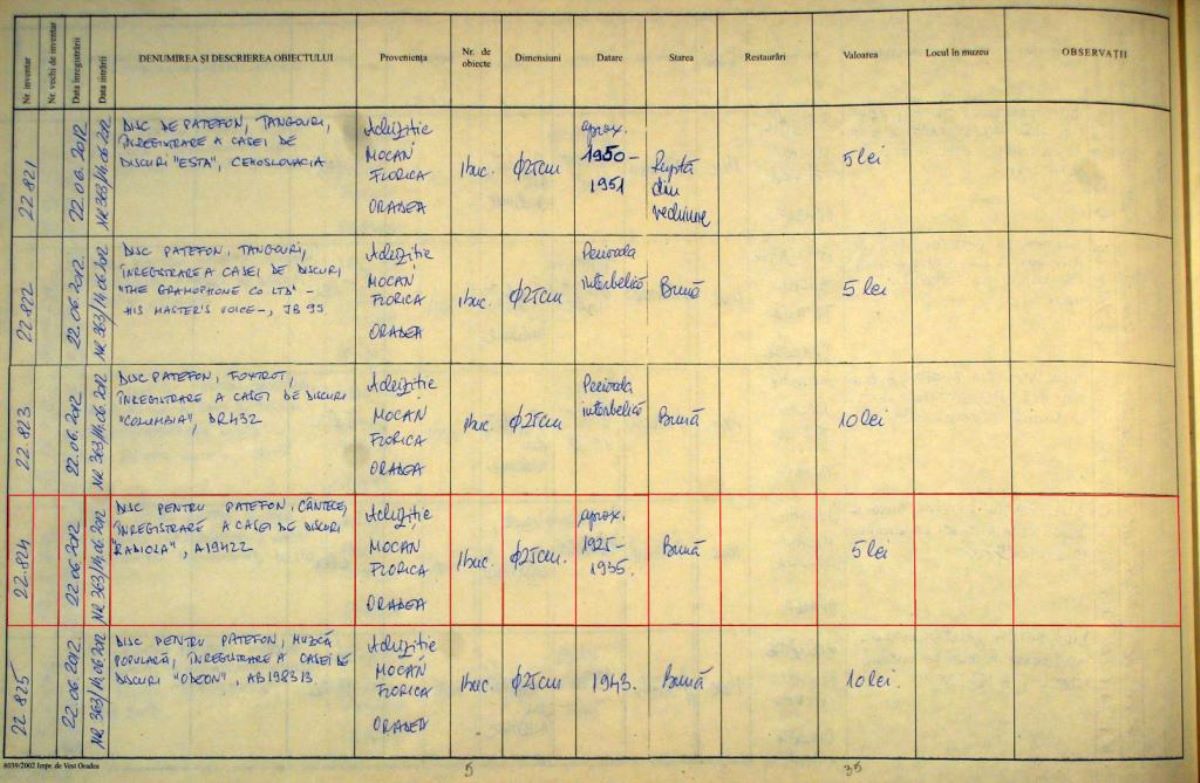 Nr. inventar
Nr. vechi de inventar
Data înregistrării
Data intrării
DENUMIREA ȘI DESCRIEREA OBIECTULUI
Proveniența
Nr. de
obiecte
Dimensiuni
Datare
Starea
Restaurări
Valoarea
Locul în muzeu
OBSERVAȚII
22 821
22.06.2012
NR 363/14.06.2012
DISC DE PATEFON, TANGOURI,
ÎNREGISTRARE A CASEI DE
DISCURI "ESTA", CEHOSLOVACIA
Achiziție
MOCAN
FLORICA
ORADEA
1buc.
ϕ25cm
aprox.
1950-
1951
Ruptă
din
vechime
5 lei
22822
22.06.2012.
NR 363/14.06.2012
DISC PATEFON, TANGOURI,
ÎNREGISTRARE A CASEI DE DISCURI
"THE GRAMOPHONE CO LTD" -
HIS MASTER'S VOICE-, JB 95
Achiziție
MOCAN
FLORICA
ORADEA
1buc.
ϕ25cm
Perioada
interbelică
Bună
5 lei
22.823
22.06.2012.
NR 363/14.06.2012
DISC PATEFON, FOXTROT,
ÎNREGISTRARE A CASEI DE DISCURI
"COLUMBIA", DR432
Achiziție
MOCAN
FLORICA
ORADEA
1buc.
ϕ25cm
Perioada
interbelică
Bună
10 lei
22.824
22.06.2012
NR 363/14.06.2012
DISC PENTRU PATEFON, CÂNTECE,
ÎNREGISTRARE A CASEI DE DISCURI
"RADIOLA", A19422
Achiziție
MOCAN
FLORICA
ORADEA
1buc.
ϕ25cm.
aprox.
1925-
1935.
Bună
5 lei
22 825
22.06.2012.
NR 363/14.06.2012
DISC PENTRU PATEFON, MUZICĂ
POPULARĂ, ÎNREGISTRARE A CASEI DE
DISCURI "ODEON", AB198313
Achiziție
MOCAN
FLORICA
ORADEA
1buc.
ϕ25cm
1943.
Bună
10 lei.
6039/2002 Impr. de Vest Oradea
5
35